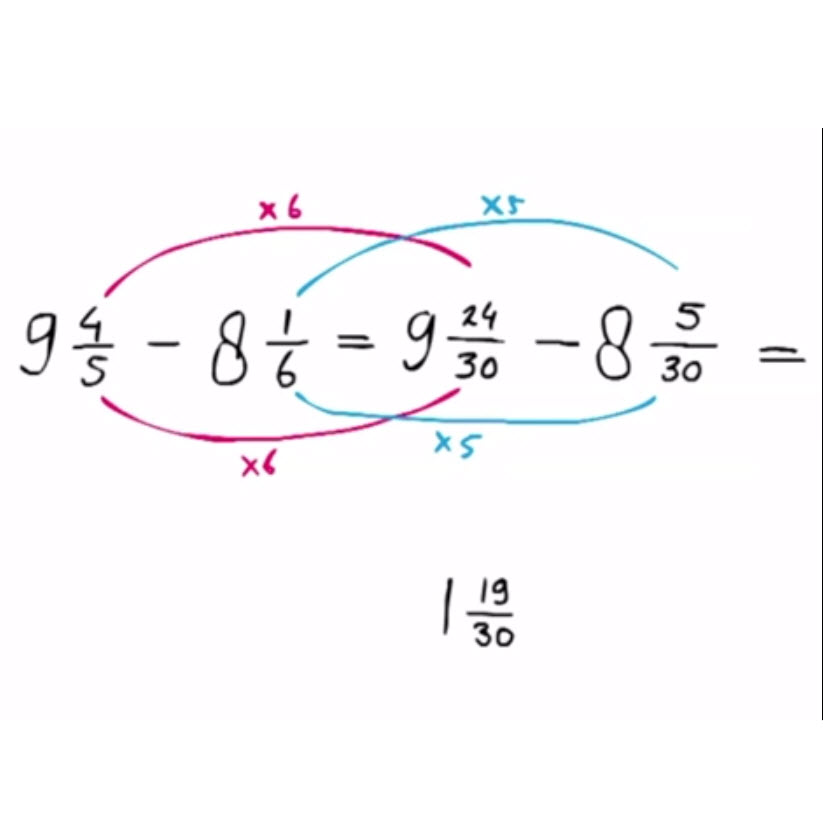 ×6 ×5
9 4/5 − 8 1/6 = 9 24/30 − 8 5/30 =
×6 ×5
1 19/30